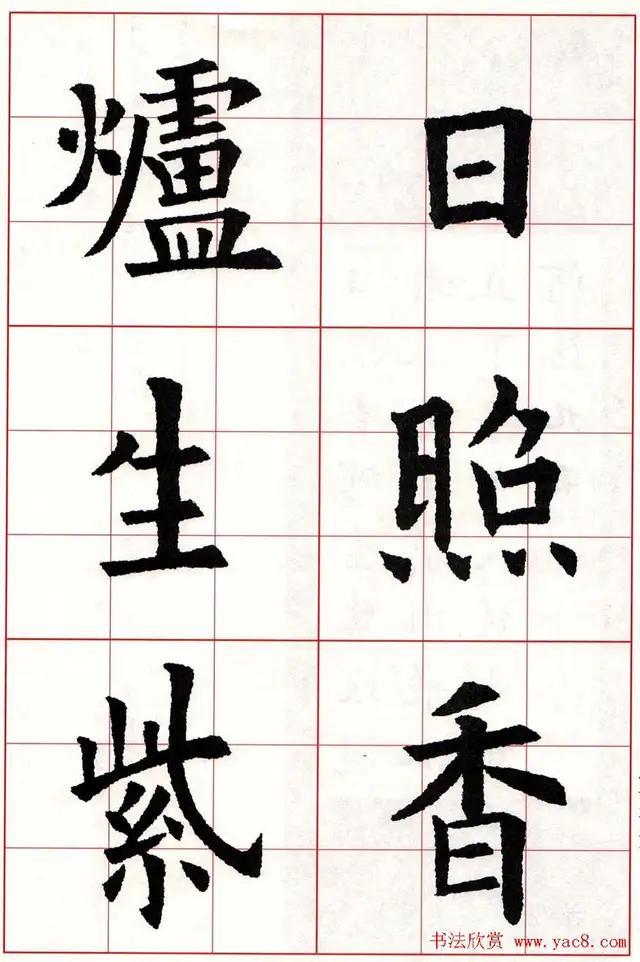 日照香
爐生紫
书法欣赏 www.yac8.com